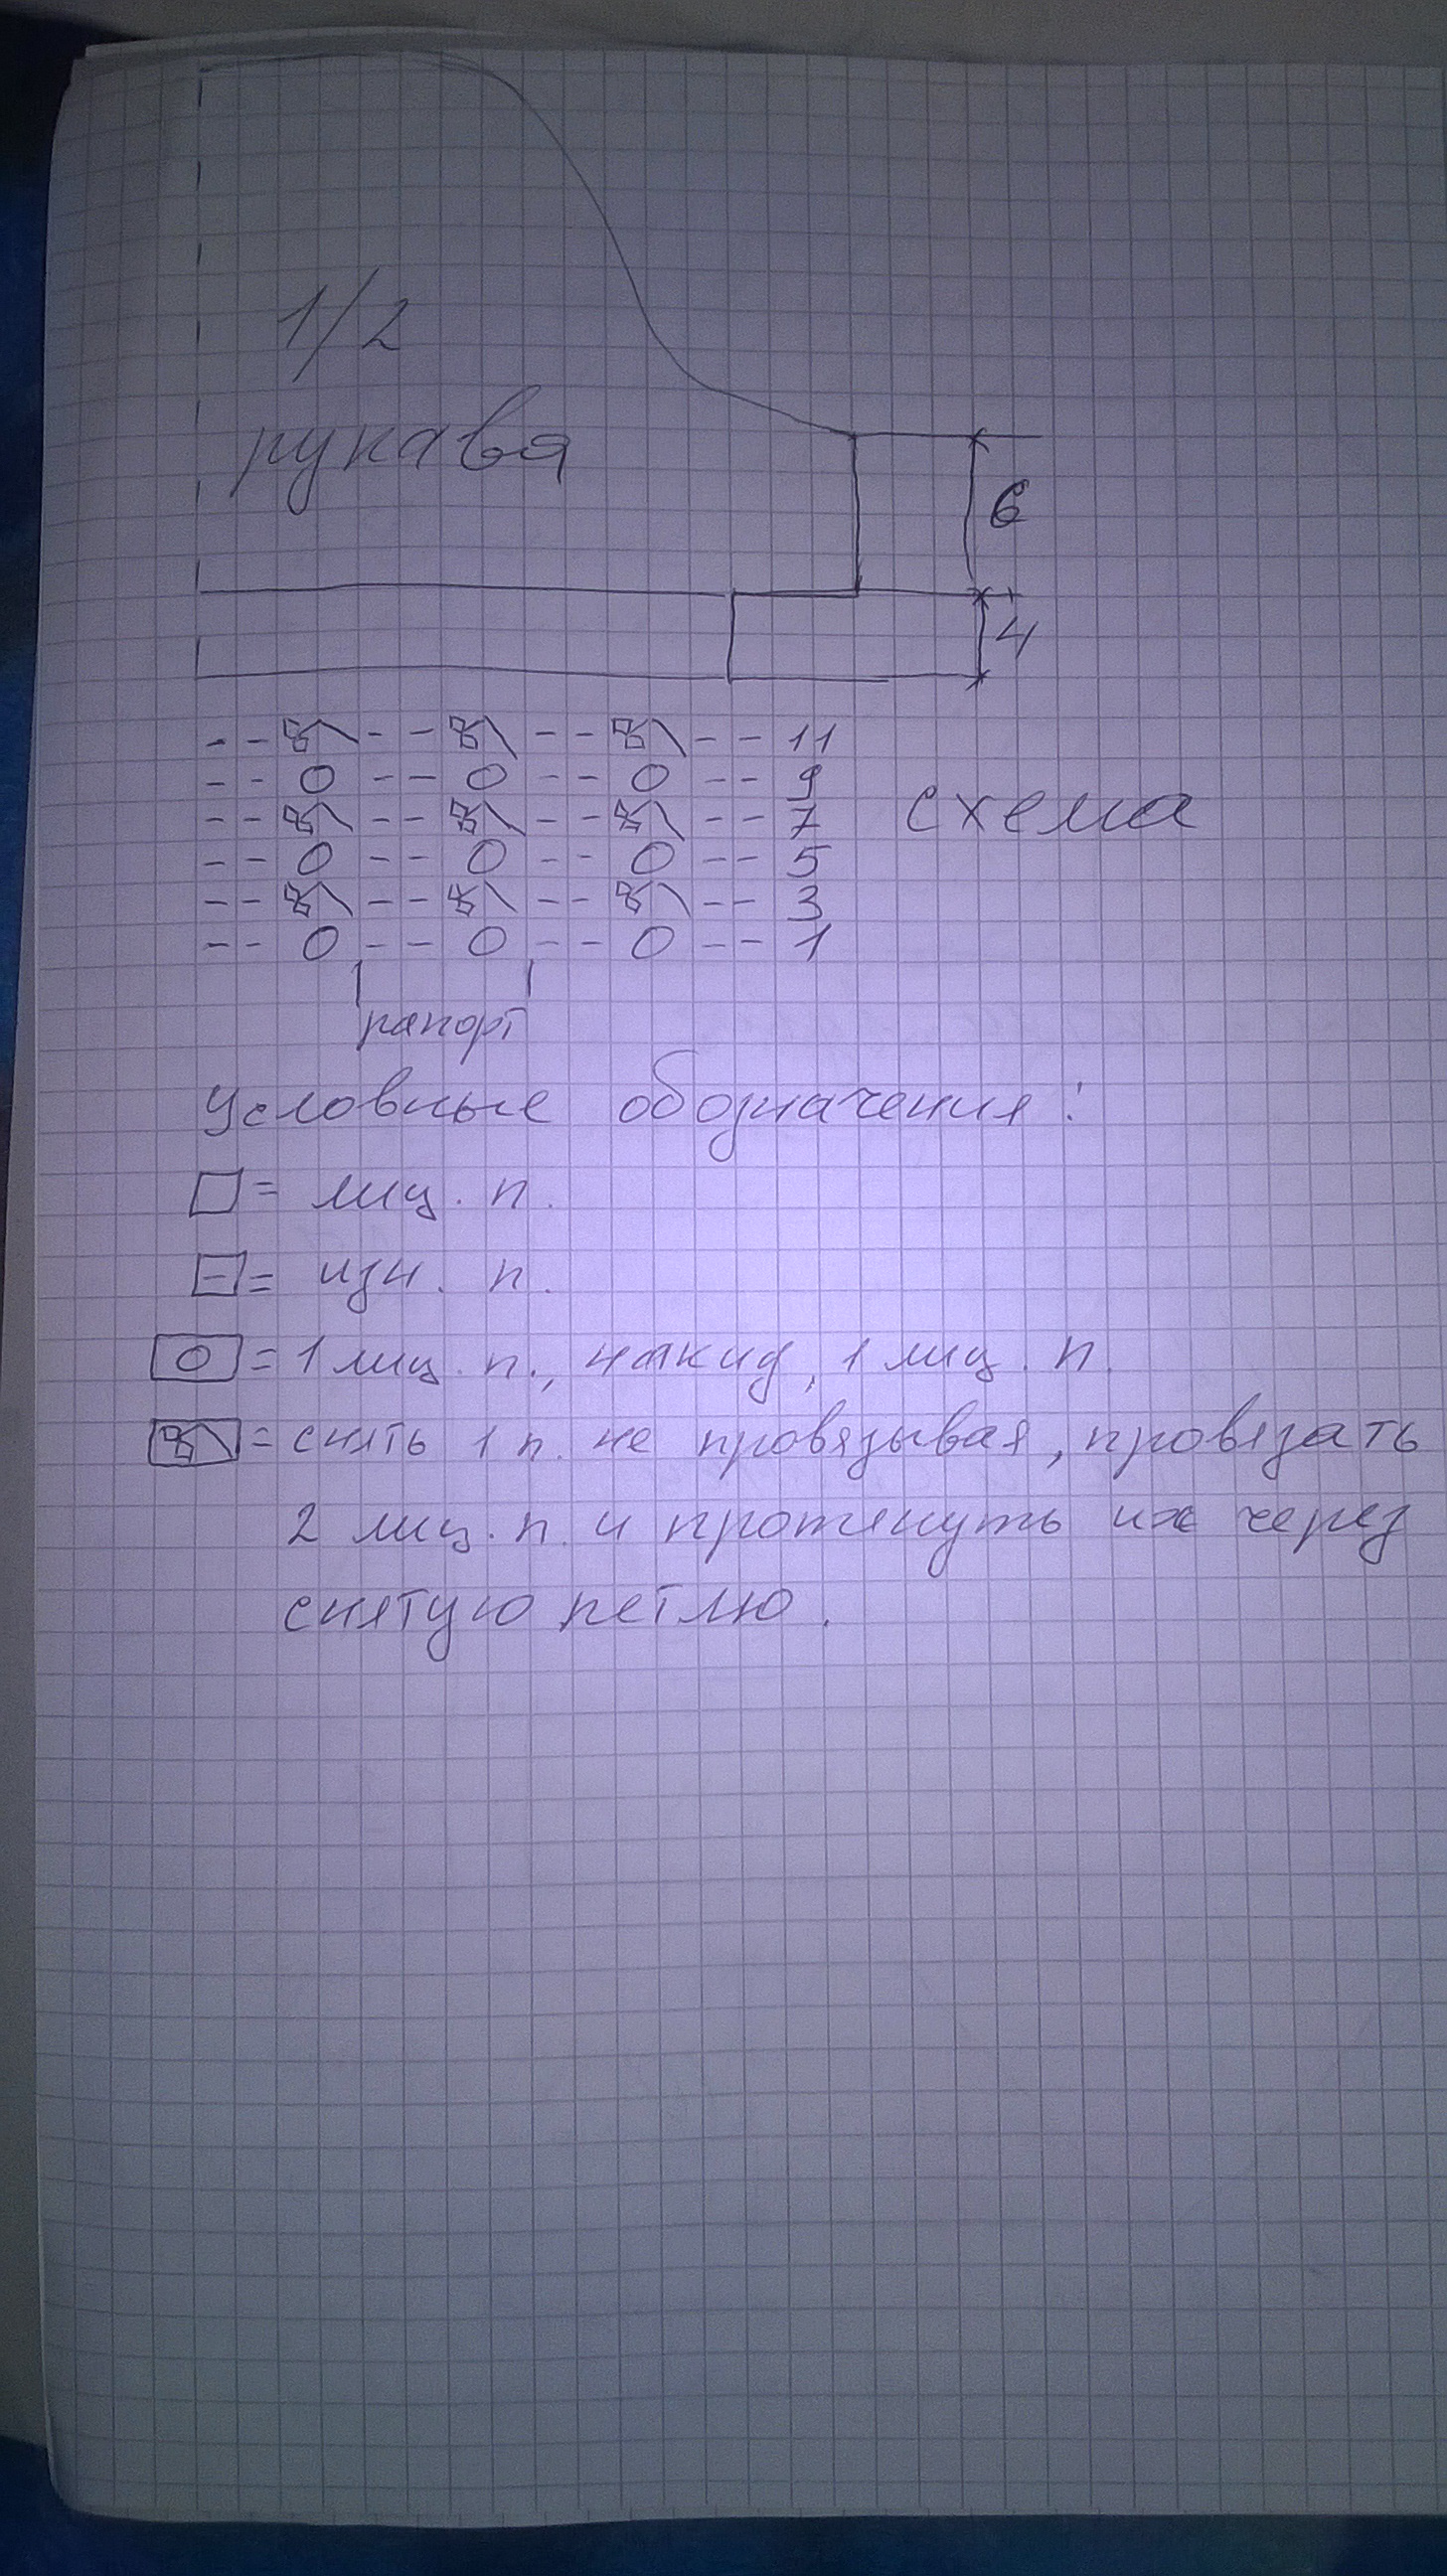 1/2
рукава
6
4
-- -- -- -- 11
-- O -- O -- O -- 9
-- -- -- -- 7
схема
-- O -- O -- O -- 5
-- -- -- -- 3
-- O -- O -- O -- 1
рапорт
Условные обозначения:
□ = лиц. п.
⊟ = изн. п.
O = 1 лиц. п., накид, 1 лиц. п.
= снять 1 п. не провязывая, провязать
2 лиц. п. и протянуть их через
снятую петлю.